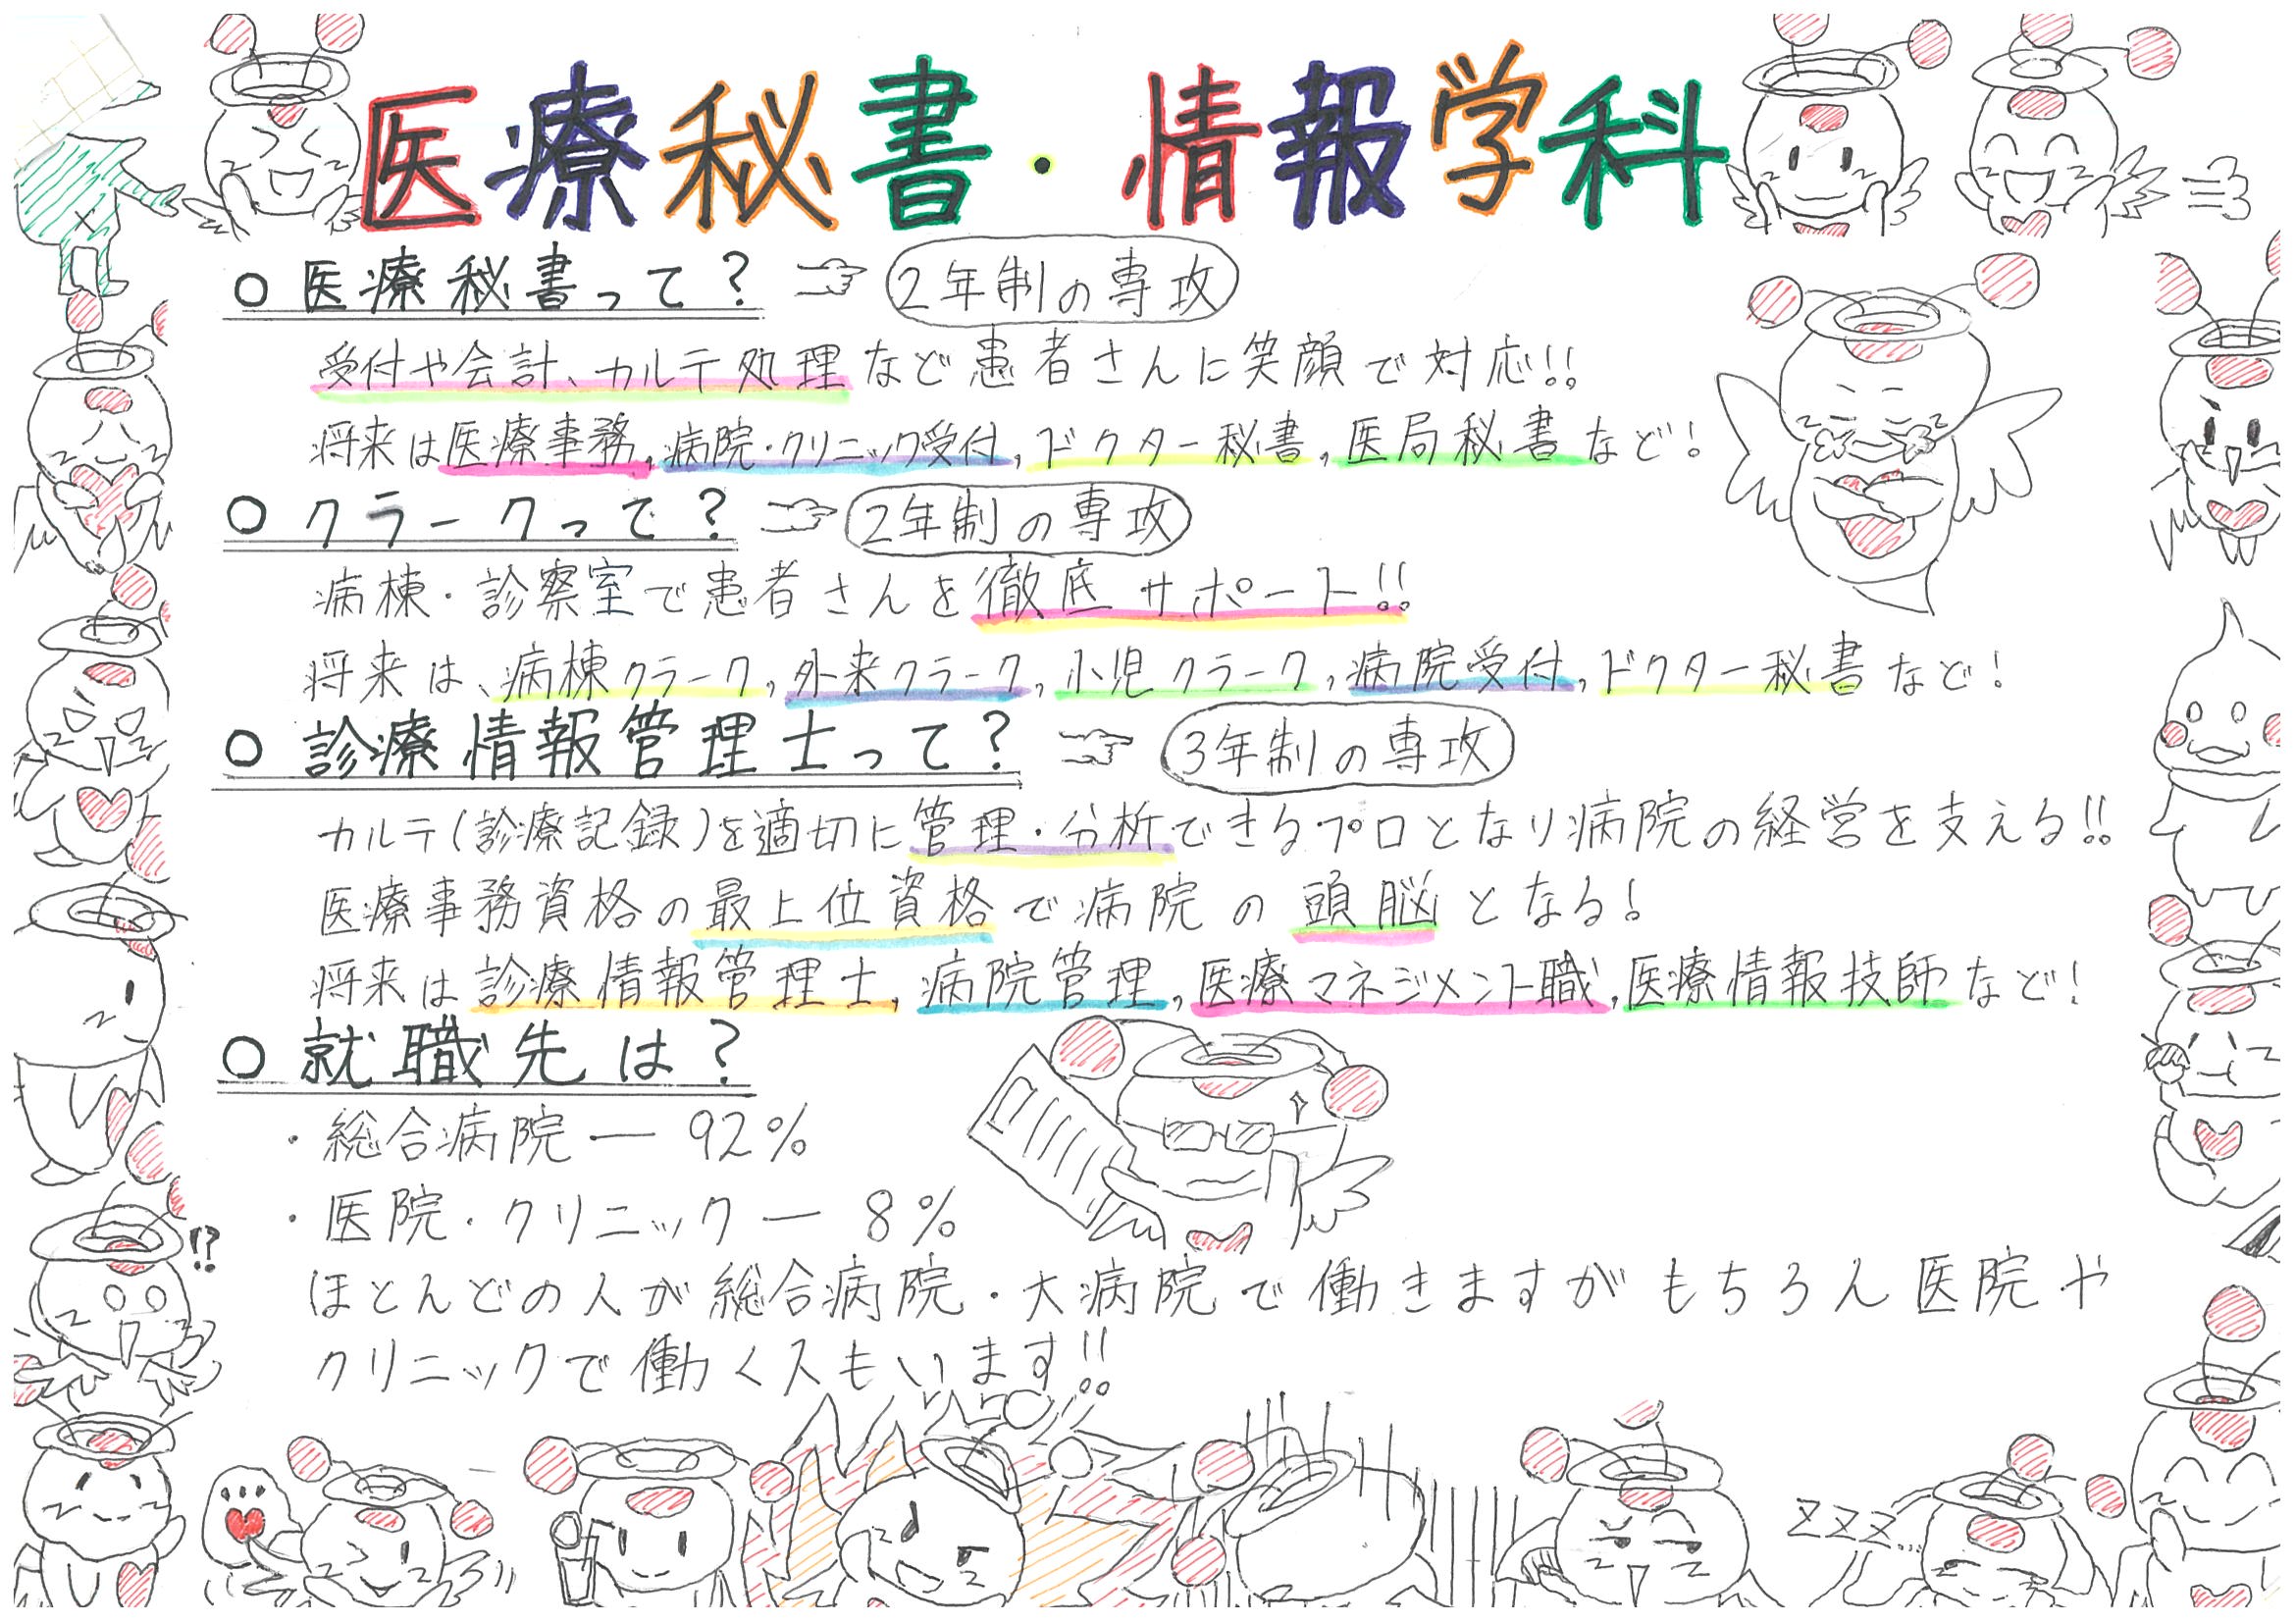 医療秘書・情報学科
○ 医療秘書って? ☞ 2年制の専攻
受付や会計、カルテ処理など患者さんに笑顔で対応!!
将来は医療事務,病院・クリニック受付,ドクター秘書,医局秘書など!
○ クラークって? ☞ 2年制の専攻
病棟・診察室で患者さんを徹底サポート!!
将来は、病棟クラーク,外来クラーク,小児クラーク,病院受付,ドクター秘書など!
○ 診療情報管理士って? ☞ 3年制の専攻
カルテ(診療記録)を適切に管理・分析できるプロとなり病院の経営を支える!!
医療事務資格の最上位資格で病院の頭脳となる!
将来は診療情報管理士,病院管理,医療マネジメント職,医療情報技師など!
○ 就職先は?
・総合病院 — 92%
・医院・クリニック — 8%
ほとんどの人が総合病院・大病院で働きますがもちろん医院や
クリニックで働く人もいます!!
!?
ZZZ...